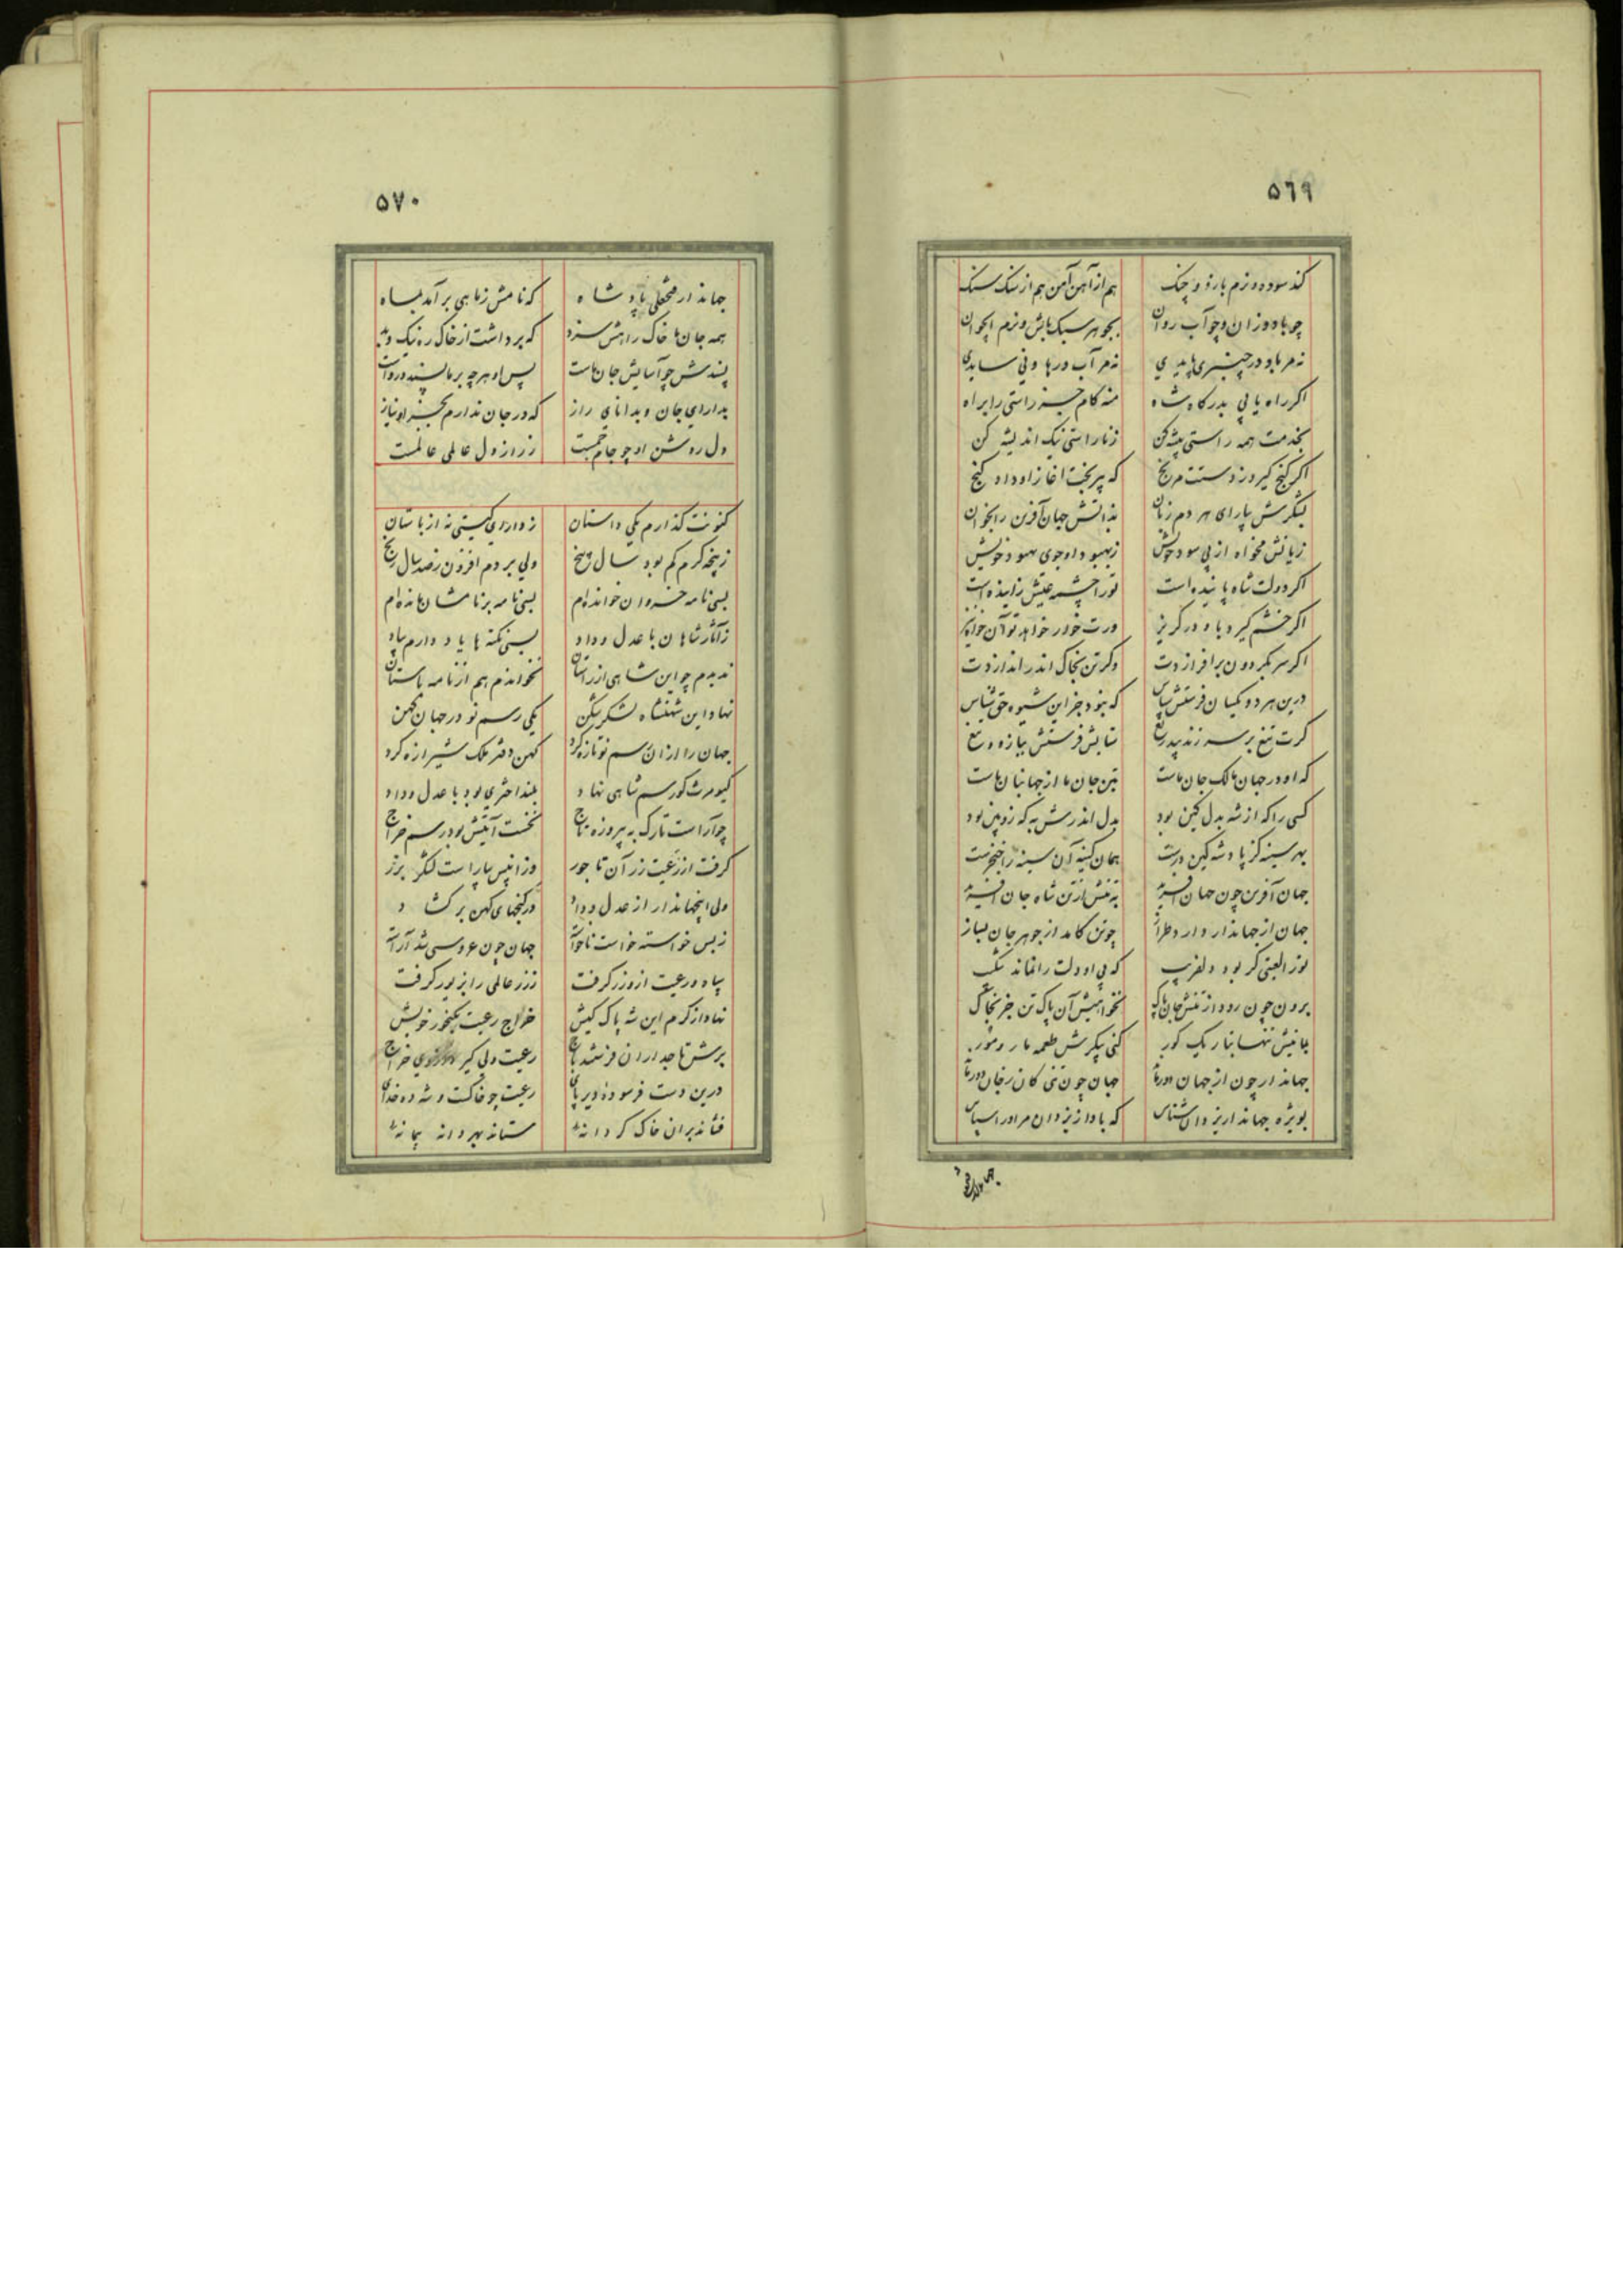 ٥٦٩
کند سوده در رزم بازو و چنک هم از آهن آهن هم از سنک سنک
چو باد وزان و چو آب روان بجوهر سبک باش و نرم ایجوان
نه مر باد در چنبری پایدی نه مر آب در هاونی سایدی
اکر راه یابی بدرکاه شاه منه کام جز راستی را براه
بخدمت همه راستی پیشه کن ز ناراستی نیک اندیشه کن
اکر کنج کیرد ز دستت مرنج که پر بخت آغاز او داد کنج
بشکرش بیارای هر دم زبان بدانش جهان آفرین را بخوان
زیانش مخواه از پی سود خویش ز بهبود او جوی بهبود خویش
اکر دولت شاه پاینده است تو را چشمه عیش زاینده است
اکر خشم کیرد باو در کریز ورت خود خواهد تو آن خواه نیز
اکر سر بکردون برافرازدت وکر تن بخاک اندر اندازدت
درین هر دو یکسان فرستش سپاس که نبود جز این شیوه حق شناس
کرت تیغ بر سر زند بیدریغ ستایش فرستش ببازو و تیغ
که او در جهان مالک جان ماست تن جان ما از جهانبان ماست
کسی را که از شه بدل کین بود بدل اندرش به که زوبین بود
بهر سینه کز پادشه کین درست همان کینه آن سینه را خنجرست
جهان آفرین چون جهان آفرید تنش از تن شاه جان آفرید
جهان از جهاندار دارد طراز چو تن کامد از جوهر جان بساز
نور العینی کر بود دلفریب که بی او دلت را نماند شکیب
برون چون رود از تنش جان پاک نخواهیش آن پاک تن جز بخاک
بمانیش تنها بتاریک کور کنی پیکرش طعمه مار و مور
جهاندار چون از جهان دور ماند جهان چون تنی کان ز جان دور ماند
بویژه جهاندار یزدان شناس که بادا ز یزدان مر او را سپاس
٥٧٠
جهاندار فتحعلی پادشاه که نامش ز ماهی برآمد بماه
همه جان ها خاک راهش سزد که برداشت از خاک ره نیک و بد
پسندش چو آسایش جان ماست پس او هر چه بر ما پسندد رواست
بدارای جان و بدانای راز که در جان ندارم بجز او نیاز
دل روشن او چو جام جمست ز راز دل عالمی عالمست
کنونت کذارم یکی داستان ز دارای کیتی نه از باستان
ز پنجه کرم کم بود سال پنج ولی بردم افزون ز صد سال رنج
بسی نامه خسروان خوانده ام بسی نامه بر نامشان مانده ام
ز آثار شاهان با عدل و داد بسی نکته ها یاد دارم بیاد
ندیدم چو این شاهی از راستان نخواندم هم از نامه باستان
نهاد این شهنشاه لشکر شکن یکی رسم نو در جهان کهن
جهان را از آن رسم نو تازه کرد کهن دفتر ملک شیرازه کرد
کیومرث کو رسم شاهی نهاد بلند اختری بود با عدل و داد
چو آراست تارک به پیروزه تاج نخست آیتش بود رسم خراج
کرفت از رعیت زر آن تاجور وز آنپس بیاراست لشکر بزر
ولی اینجهاندار از عدل و داد در کنجهای کهن برکشاد
ز بس خواسته خواست ناخواست جهان چون عروسی شد آراست
سپاه و رعیت ازو زر کرفت ز زر عالمی را بزیور کرفت
نهاد از کرم این شه پاک کیش خراج رعیت بکنجور خویش
برش تاجداران فرستند باج رعیت ولی کیرد از وی خراج
درین دست فرسوده دیر پای رعیت چو خاکست و شه ده خدای
فشاند بر آن خاک کر دانهٔ ستاند بهر دانه پیمانهٔ